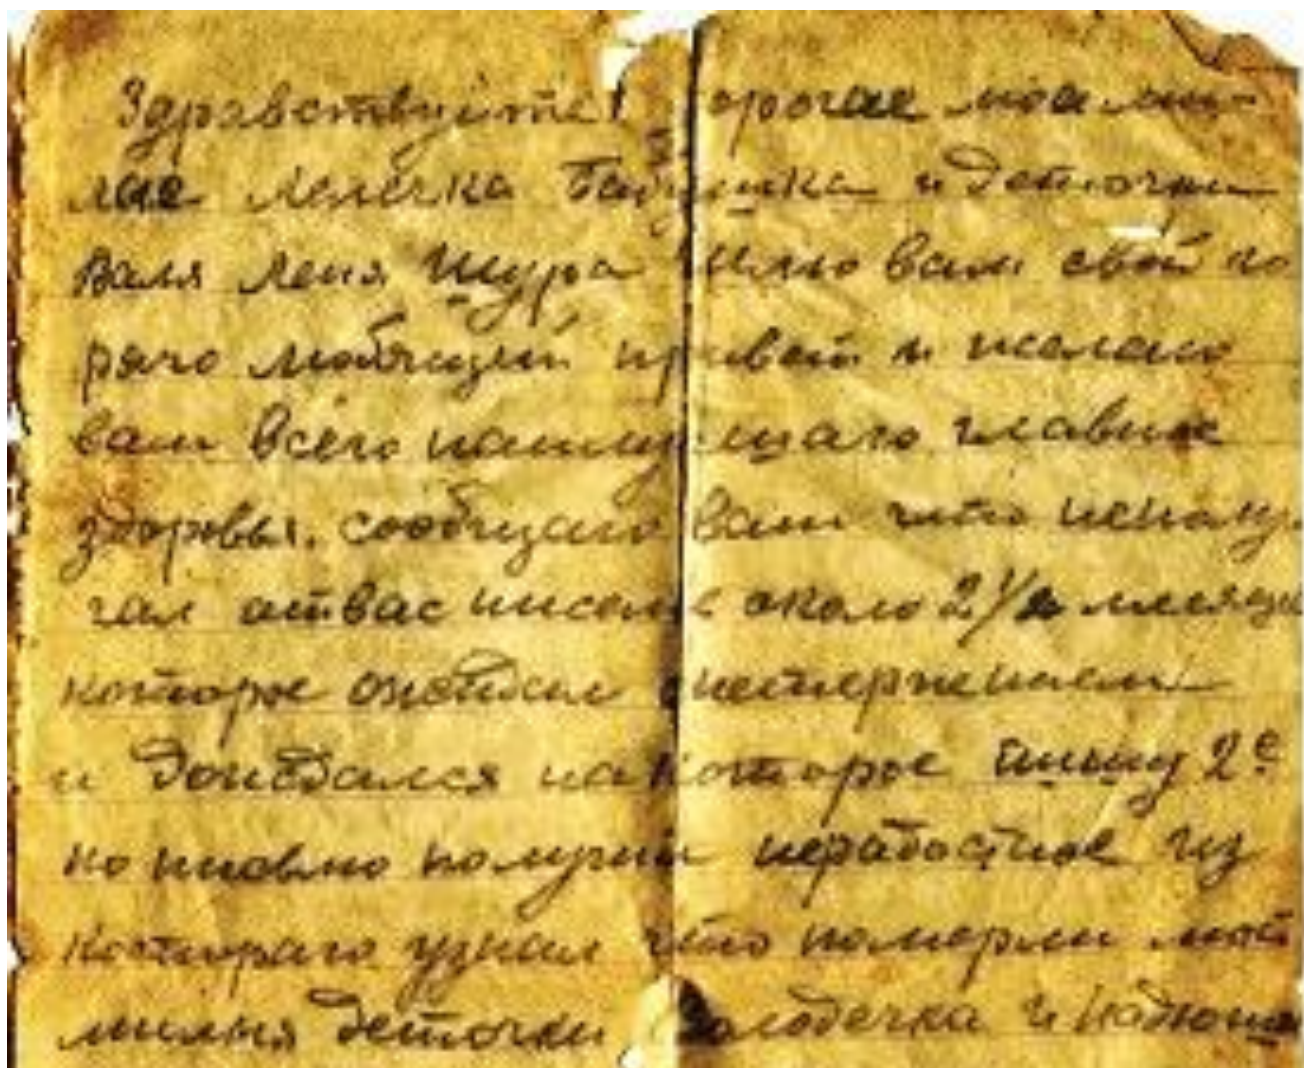 Здравствуйте дорогая моя ми-
лая Лелечка бабушка и деточки
Валя Леня Шура шлю вам свой го
рячо любящий привет и желаю
вам всего наилучшаго главное
здоровья. сообщаю вам что неполу
чал отвас писем около 2 1/2 месяца
которое ожидал снетерпением
и дождался на которое пишу 2е
но письмо получил нерадостное из
котораго узнал что померли мои
милыя деточки Володечка и Надюша